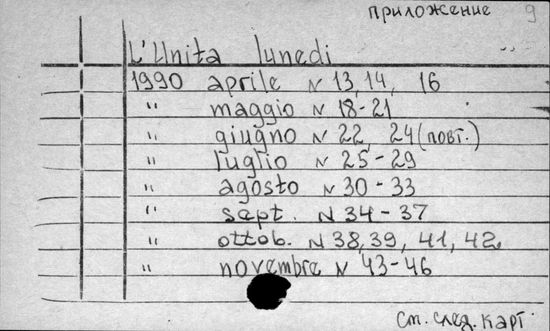 приложение 9
L'Unita lunedi
1990 aprile N 13, 14, 16
" maggio N 18-21
" giugno N 22 24 (повт.)
" luglio N 25-29
" agosto N 30-33
" sept. N 34-37
" ottob. N 38, 39, 41, 42
" novembre N 43-46
см. след. карт